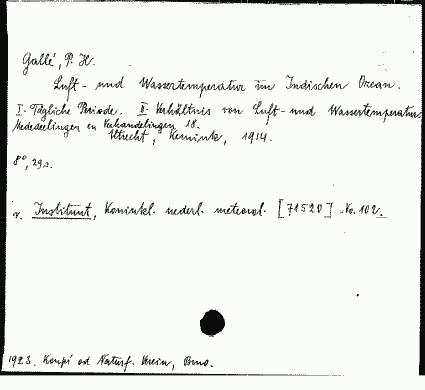 Gallé, P. H.
Luft- und Wassertemperatur im Indischen Ozean.
I. Tägliche Periode. II. Verhältnis von Luft- und Wassertemperatur.
Mededeelingen en Verhandelingen 18.
Utrecht, Kemink, 1914.
8°, 29 s.
v. Instituut, Koninkl. nederl. meteorol. [71520] No. 102.
1923. Koupí od Naturf. Verein, Brno.